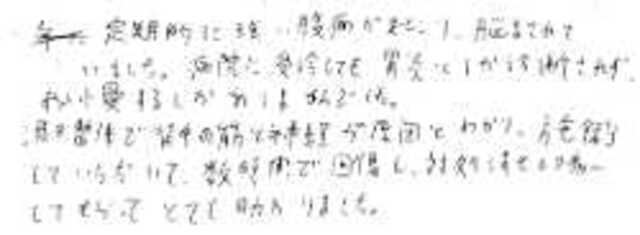 定期的に強い腹痛が起こり、悩まされて
いました。病院に受診しても胃炎としか診断されず、
我慢するしかありませんでした。
整体で背中の筋と神経が原因とわかり、施術
していただいて、数時間で回復し、対処
してもらってとても助かりました。